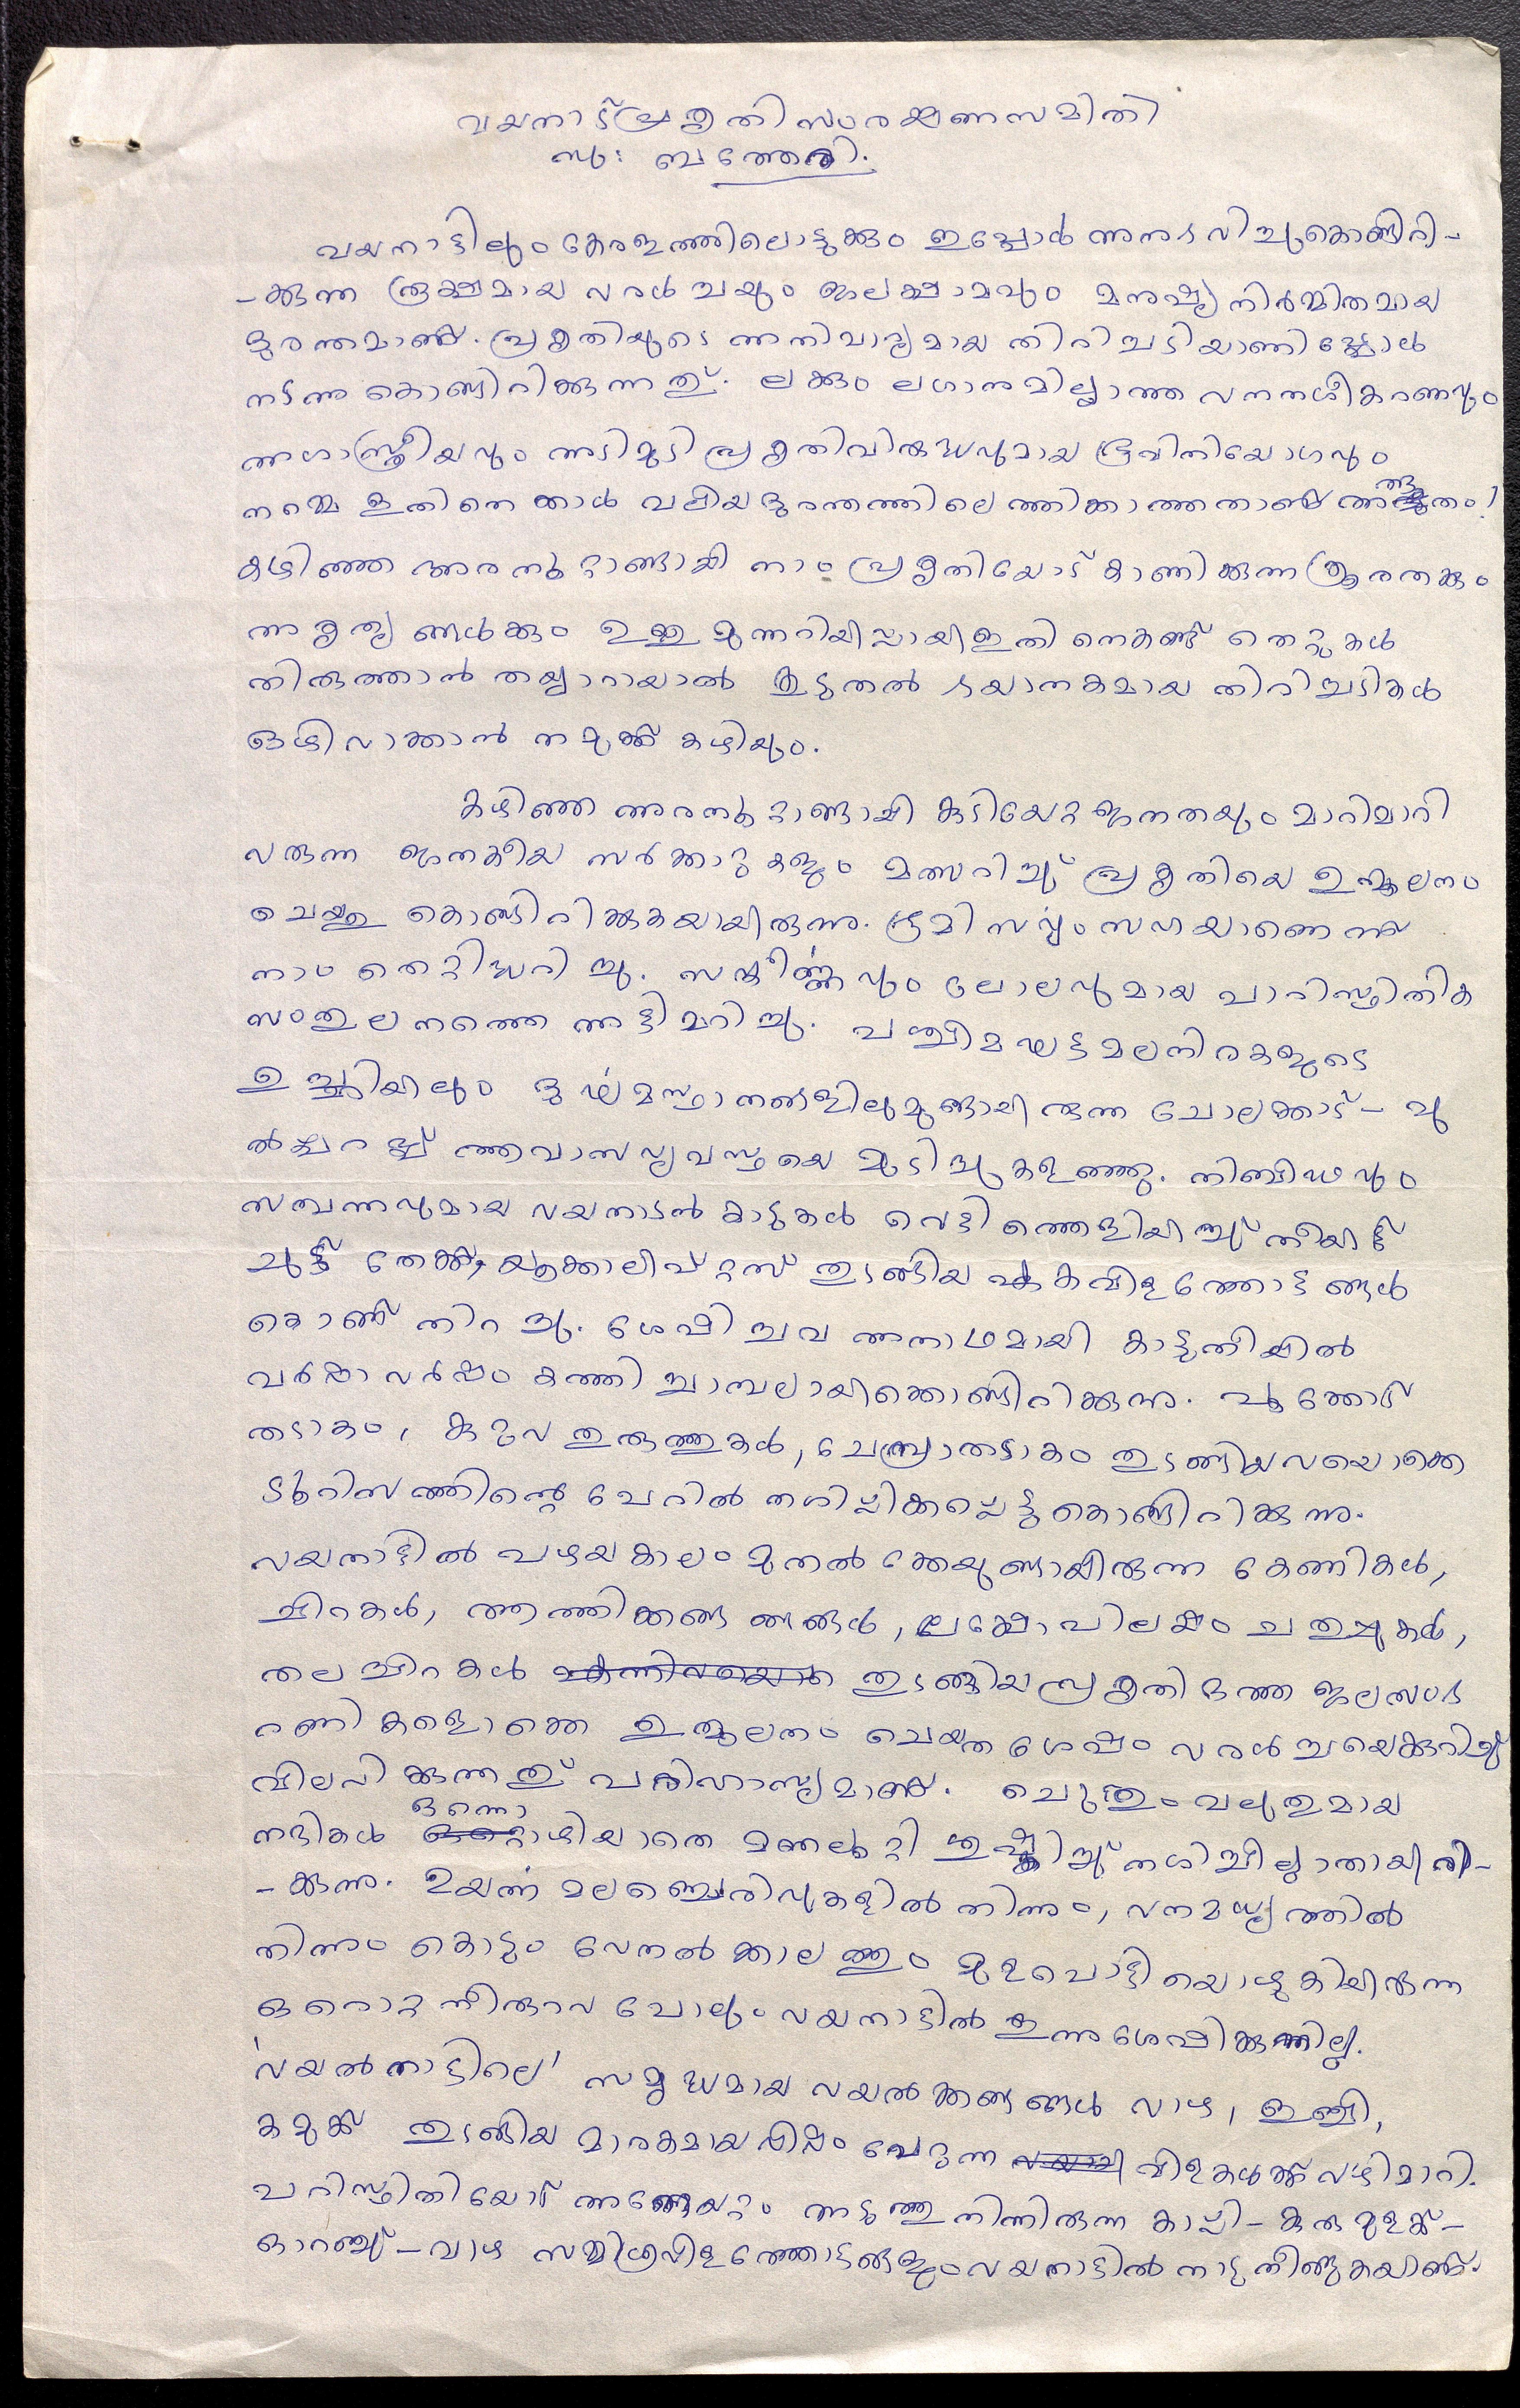 വയനാട് പ്രകൃതി സംരക്ഷണസമിതി
സു: ബത്തേരി.
വയനാട്ടിലും കേരളത്തിലൊട്ടുക്കും ഇപ്പോൾ അനുഭവിച്ചുകൊണ്ടിരി-
-ക്കുന്ന രൂക്ഷമായ വരൾച്ചയും ജലക്ഷാമവും മനുഷ്യനിർമ്മിതമായ
ദുരന്തമാണ്. പ്രകൃതിയുടെ അനിവാര്യമായ തിറിച്ചടിയാണിപ്പോൾ
നടന്നുകൊണ്ടിറിക്കുന്നത്. ലക്കും ലഗാനുമില്ലാത്ത വനനശീകരണവും
അശാസ്ത്രീയവും അടിമുടി പ്രകൃതിവിരുദ്ധവുമായ ഭൂവിനിയോഗവും
നമ്മെ ഇതിനെക്കാൾ വലിയ ദുരന്തത്തിലെത്തിക്കാത്തതാണ് അത്ഭുതം!
കഴിഞ്ഞ അരനൂറ്റാണ്ടായി നാം പ്രകൃതിയോട് കാണിക്കുന്ന ക്രൂരതക്കും
അകൃത്യങ്ങൾക്കും ഉള്ള മുന്നറിയിപ്പായി ഇതിനെകണ്ട് തെറ്റുകൾ
തിരുത്താൻ തയ്യാറായാൽ കൂടുതൽ ഭയാനകമായ തിറിച്ചടികൾ
ഒഴിവാക്കാൻ നമുക്ക് കഴിയും.
കഴിഞ്ഞ അരനൂറ്റാണ്ടായി കുടിയേറ്റജനതയും മാറിമാറി
വരുന്ന ജനകീയ സർക്കാറുകളും മത്സറിച്ച് പ്രകൃതിയെ ഉന്മൂലനം
ചെയ്തു കൊണ്ടിറിക്കുകയായിരുന്നു. ഭൂമി സർവ്വംസഹയാണെന്ന്
നാം തെറ്റിദ്ധറിച്ചു. സങ്കീർണ്ണവും ലോലവുമായ പാറിസ്ഥിതിക
സംതുലനത്തെ അട്ടിമറിച്ചു. പശ്ചിമഘട്ടമലനിരകളുടെ
ഉച്ചിയിലും ദുർഘമസ്ഥാനങ്ങളിലുമുണ്ടായിരുന്ന ചോലക്കാട്-പു
ൽപ്പറപ്പ് ആവാസവ്യവസ്ഥയെ മുടിച്ചുകളഞ്ഞു. നിബിഢവും
സമ്പന്നവുമായ വയനാടൻ കാടുകൾ വെട്ടിത്തെളിയിച്ച് തീയിട്ട്
ചുട്ട് തേക്ക്, യൂക്കാലിപ്റ്റസ് തുടങ്ങിയ ഏകവിളത്തോട്ടങ്ങൾ
കൊണ്ട് നിറച്ചു. ശേഷിച്ചവ അനാഥമായി കാട്ടുതീയിൽ
വർഷാവർഷം കത്തി ചാമ്പലായിക്കൊണ്ടിറിക്കുന്നു. പൂക്കോട്
തടാകം, കുറുവ തുരുത്തുകൾ, ചേമ്പ്രാതടാകം തുടങ്ങിയവയൊക്കെ
ടൂറിസത്തിന്റെ പേറിൽ നശിപ്പിക്കപ്പെട്ടുകൊണ്ടിറിക്കുന്നു.
വയനാട്ടിൽ പഴയകാലം മുതൽക്കേയുണ്ടായിരുന്ന കേണികൾ,
ചിറകൾ, ആത്തിക്കണ്ടങ്ങൾ, ലക്ഷോപിലക്ഷം ചതുപ്പുകൾ,
തലച്ചിറകൾ തുടങ്ങിയ പ്രകൃതിദത്ത ജലസംഭ
റണികളൊക്കെ ഉന്മൂലനം ചെയ്തശേഷം വരൾച്ചയെക്കുറിച്ച്
വിലപിക്കുന്നത് പരിഹാസ്യമാണ്. ചെറുതും വലുതുമായ
നദികൾ ഒന്നൊഴിയാതെ മണലൂറ്റി ശുഷ്കിച്ച് നശിച്ചില്ലാതായിരി-
-ക്കുന്നു. ഉയർന്ന മലഞ്ചെരിവുകളിൽ നിന്നും, വനമധ്യത്തിൽ
നിന്നും കൊടും വേനൽക്കാലത്തും മുളപൊട്ടിയൊഴുകിയിരുന്ന
ഒറൊറ്റ നീരുറവ പോലും വയനാട്ടിൽ ഇന്നു ശേഷിക്കുന്നില്ല.
'വയൽനാട്ടിലെ' സമൃദ്ധമായ വയൽക്കണ്ടങ്ങൾ വാഴ, ഇഞ്ചി,
കമുക് തുടങ്ങിയ മാരകമായ വിഷം പേറുന്ന വിളകൾക്ക് വഴിമാറി.
പറിസ്ഥിതിയോട് അങ്ങേയറ്റം അടുത്തുനിന്നിരുന്ന കാപ്പി-കുരുമുളക്-
ഓറഞ്ച്-വാഴ സമ്മിശ്രവിളത്തോട്ടങ്ങളും വയനാട്ടിൽ നാടുനീങ്ങുകയാണ്.